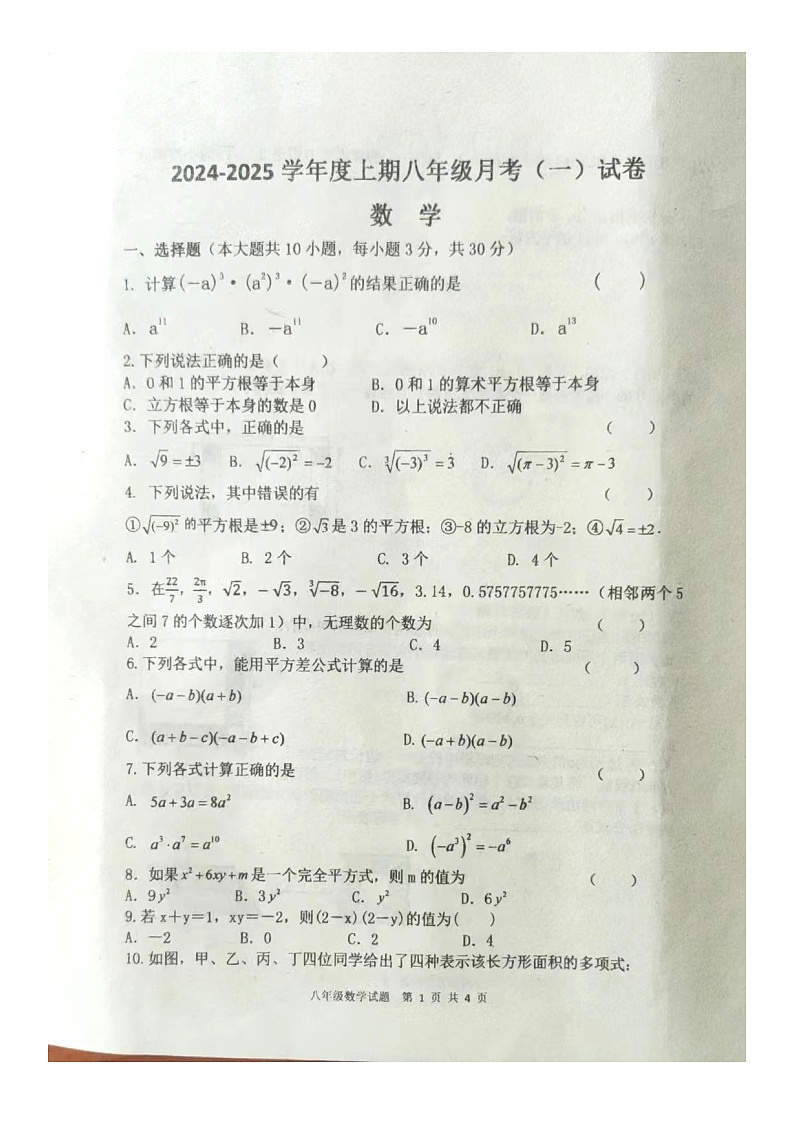 2024-2025 学年度上期八年级月考（一）试卷
数 学
一、选择题（本大题共 10 小题，每小题 3 分，共 30 分）
1. 计算(－a)³·(a²)³·(－a)²的结果正确的是 （ ）
A. a¹¹ B. －a¹¹ C. －a¹⁰ D. a¹³
2.下列说法正确的是（ ）
A. 0 和 1 的平方根等于本身 B. 0 和 1 的算术平方根等于本身
C. 立方根等于本身的数是 0 D. 以上说法都不正确
3. 下列各式中，正确的是 （ ）
A. √9=±3 B. √(-2)²=-2 C. ∛(-3)³=3 D. √(π-3)²=π-3
4. 下列说法，其中错误的有 （ ）
①√(-9)² 的平方根是±9；②√3是 3 的平方根；③-8 的立方根为-2；④√4=±2.
A. 1 个 B. 2 个 C. 3 个 D. 4 个
5. 在22/7，2π/3，√2，－√3，∛-8，－√16，3.14，0.5757757775……（相邻两个 5
之间 7 的个数逐次加 1）中，无理数的个数为 （ ）
A. 2 B. 3 C. 4 D. 5
6.下列各式中，能用平方差公式计算的是 （ ）
A. (-a-b)(a+b) B. (-a-b)(a-b)
C. (a+b-c)(-a-b+c) D. (-a+b)(a-b)
7.下列各式计算正确的是 （ ）
A. 5a+3a=8a² B. (a-b)²=a²-b²
C. a³·a⁷=a¹⁰ D. (-a³)²=-a⁶
8. 如果x²+6xy+m是一个完全平方式，则 m 的值为 （ ）
A. 9y² B. 3y² C. y² D. 6y²
9.若 x＋y＝1，xy＝－2，则(2－x)(2－y)的值为( )
A. －2 B. 0 C. 2 D. 4
10.如图，甲、乙、丙、丁四位同学给出了四种表示该长方形面积的多项式：
八年级数学试题 第 1 页 共 4 页